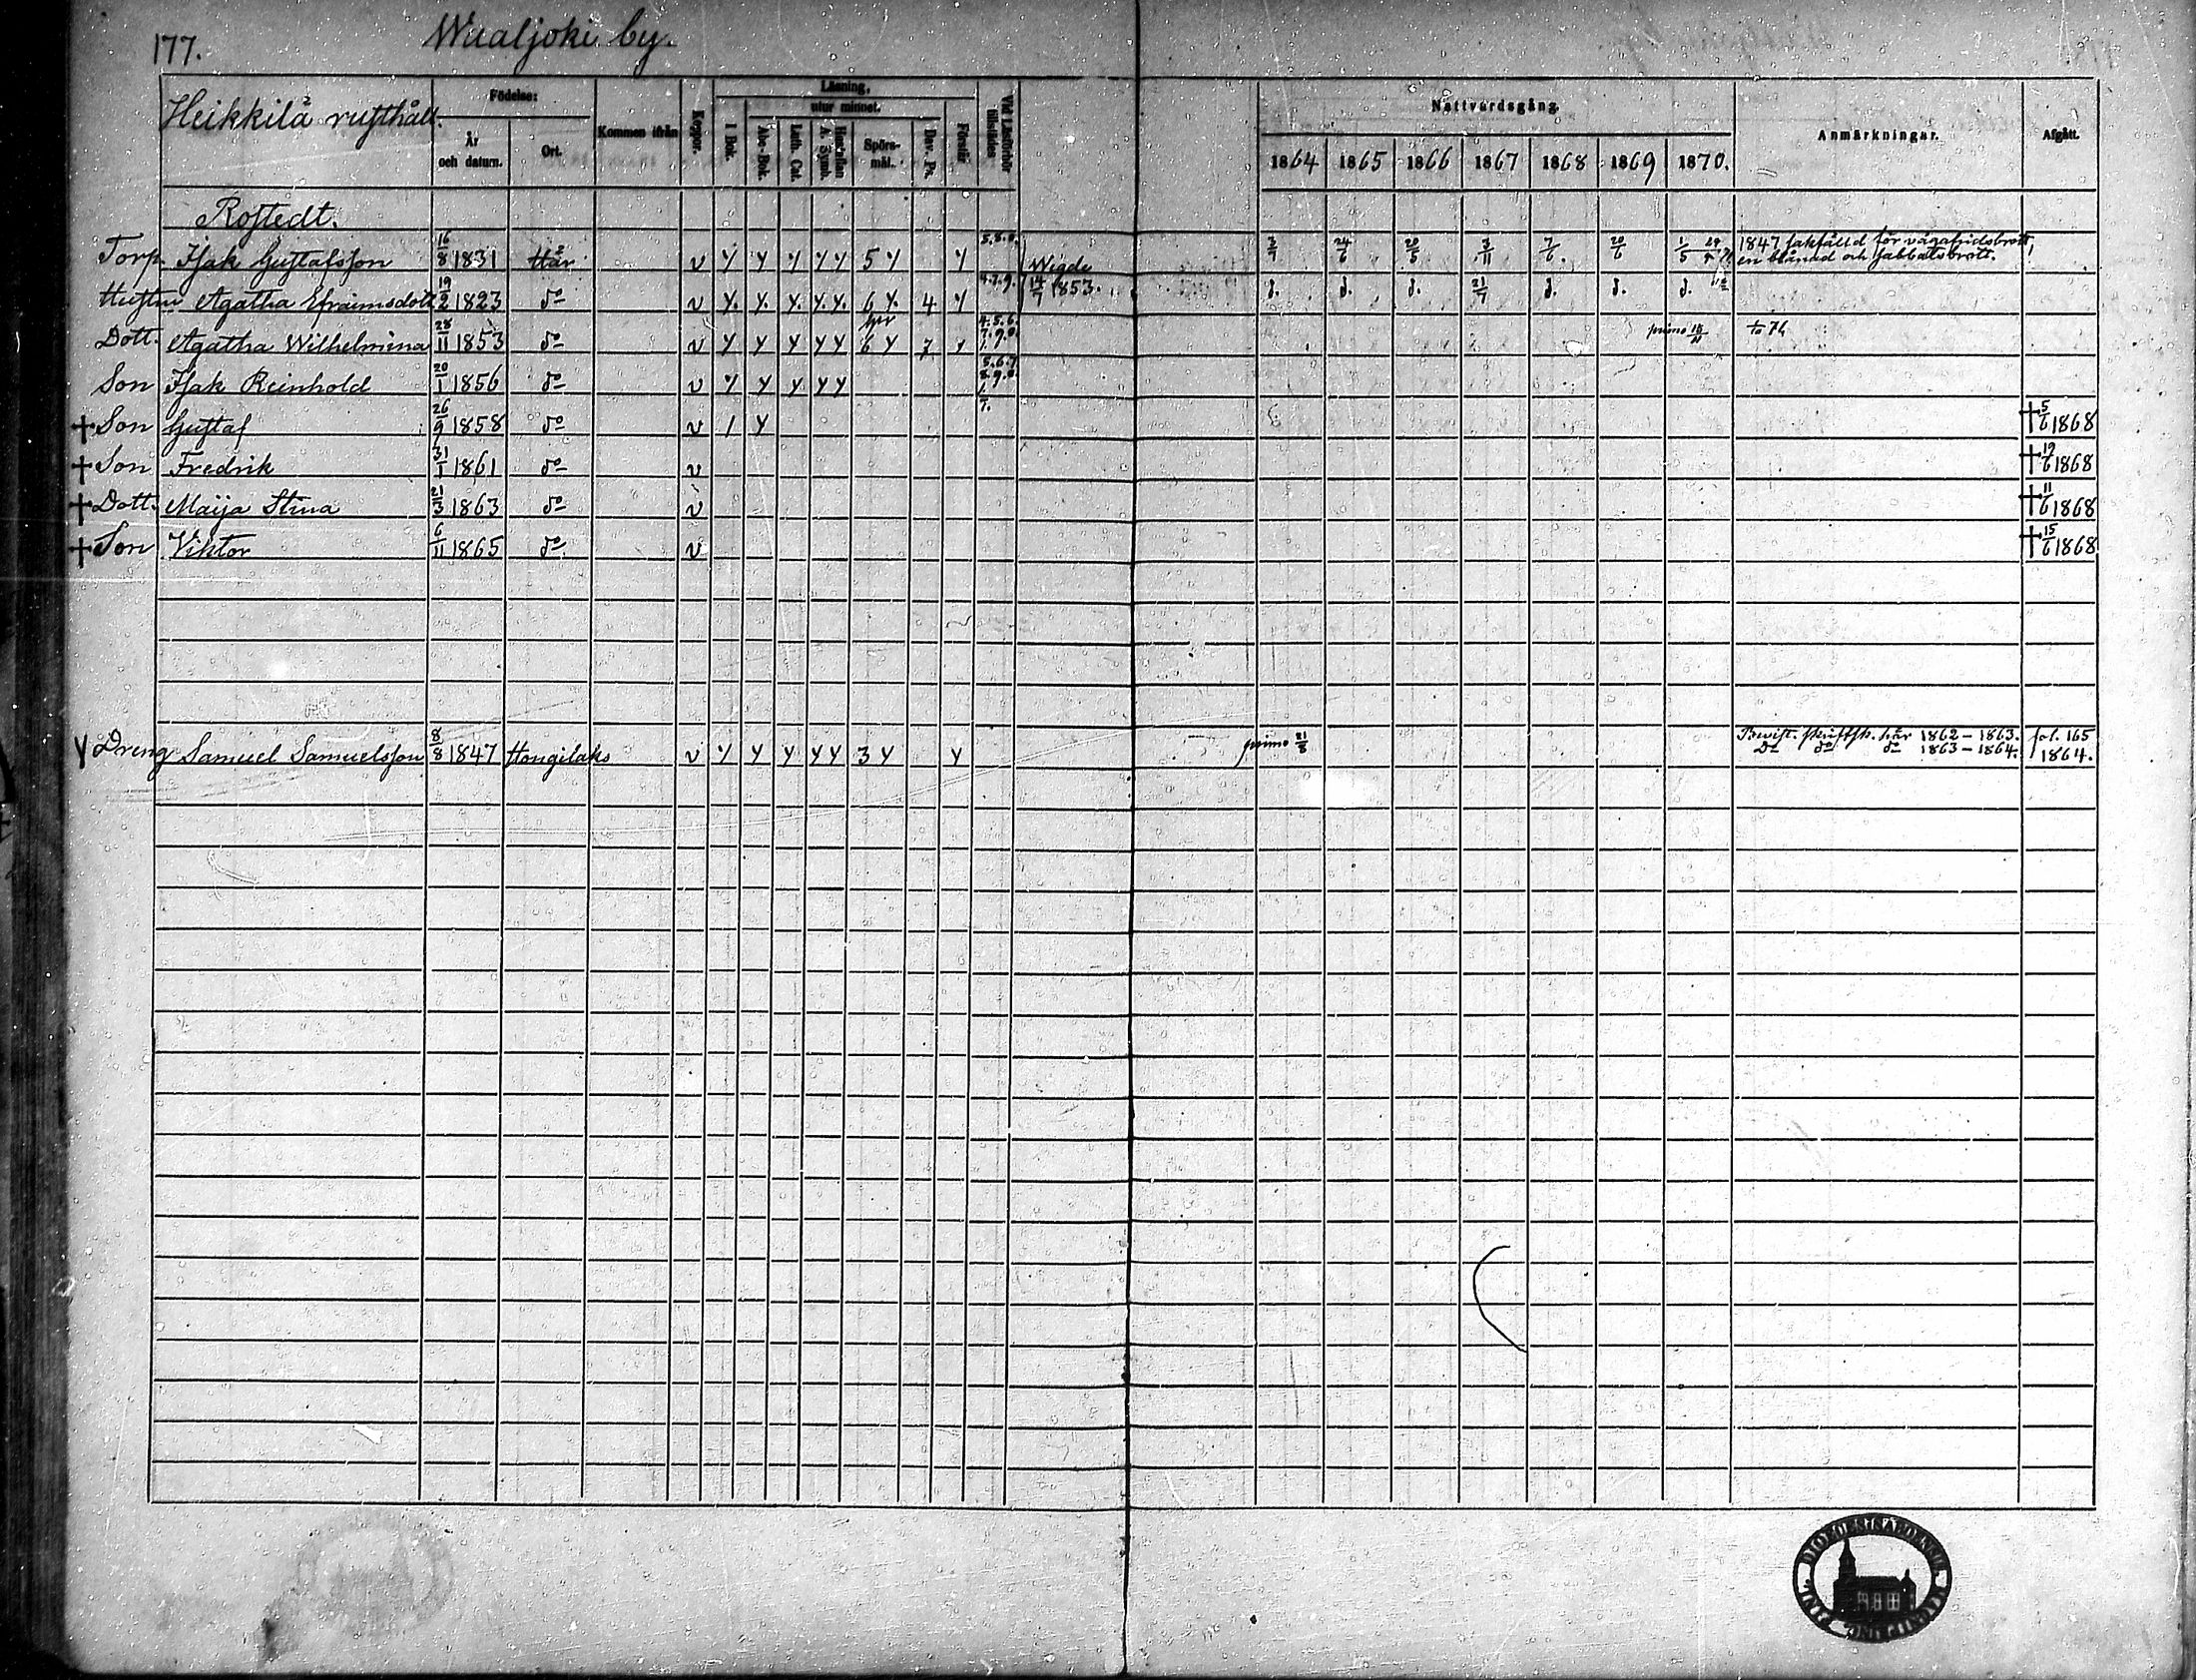 177. Wualjoki by.
Heikkilä rusthåll.
Födelse: År och datum. Ort.
Kommen ifrån
Koppor.
Läsning, utur minnet.
I Bok. Abc-Bok. Luth. Cat. A. Symb. Spörs-mål. Dav. Ps. Förstår
Vid Läsförhör tillstädes
Nattvardsgång.
1864 1865 1866 1867 1868 1869 1870.
Anmärkningar.
Afgått.
Rostedt.
Torp. Isak Gustafsson 16/8 1831 Här v y y y y y 5 y y 24/6 20/5 3/11 7/6 20/6 1/5 1847 sakfälld för
en och sabbatsbrott.
Wigde
Hustru Agatha Efraimsdott 19/2 1823 do v y. y. y. y. y. 6 y. 4 y 4.7.9. 14/7 1853. d. d. d. 21/7 d. d. d.
Dott. Agatha Wilhelmina 28/11 1853 do v y y y y y 6 y 7 y 4.5.6. 7.9.0. primo
Son Isak Reinhold 20/1 1856 do v y y y y y 5.6.7
+ Son Gustaf 26/9 1858 do v 1 y + 5/6 1868
+ Son Fredrik 31/1 1861 do v + 19/6 1868
+ Dott. Maija Stina 21/3 1863 do v + 11/6 1868
+ Son Viktor 6/11 1865 do v + 15/6 1868
y Dreng Samuel Samuelsson 8/8 1847 Hongilaks v y y y y y 3 y y primo 21/8 Bevist. skriftsk. här 1862-1863. fol. 165
Do do do 1863-1864. 1864.